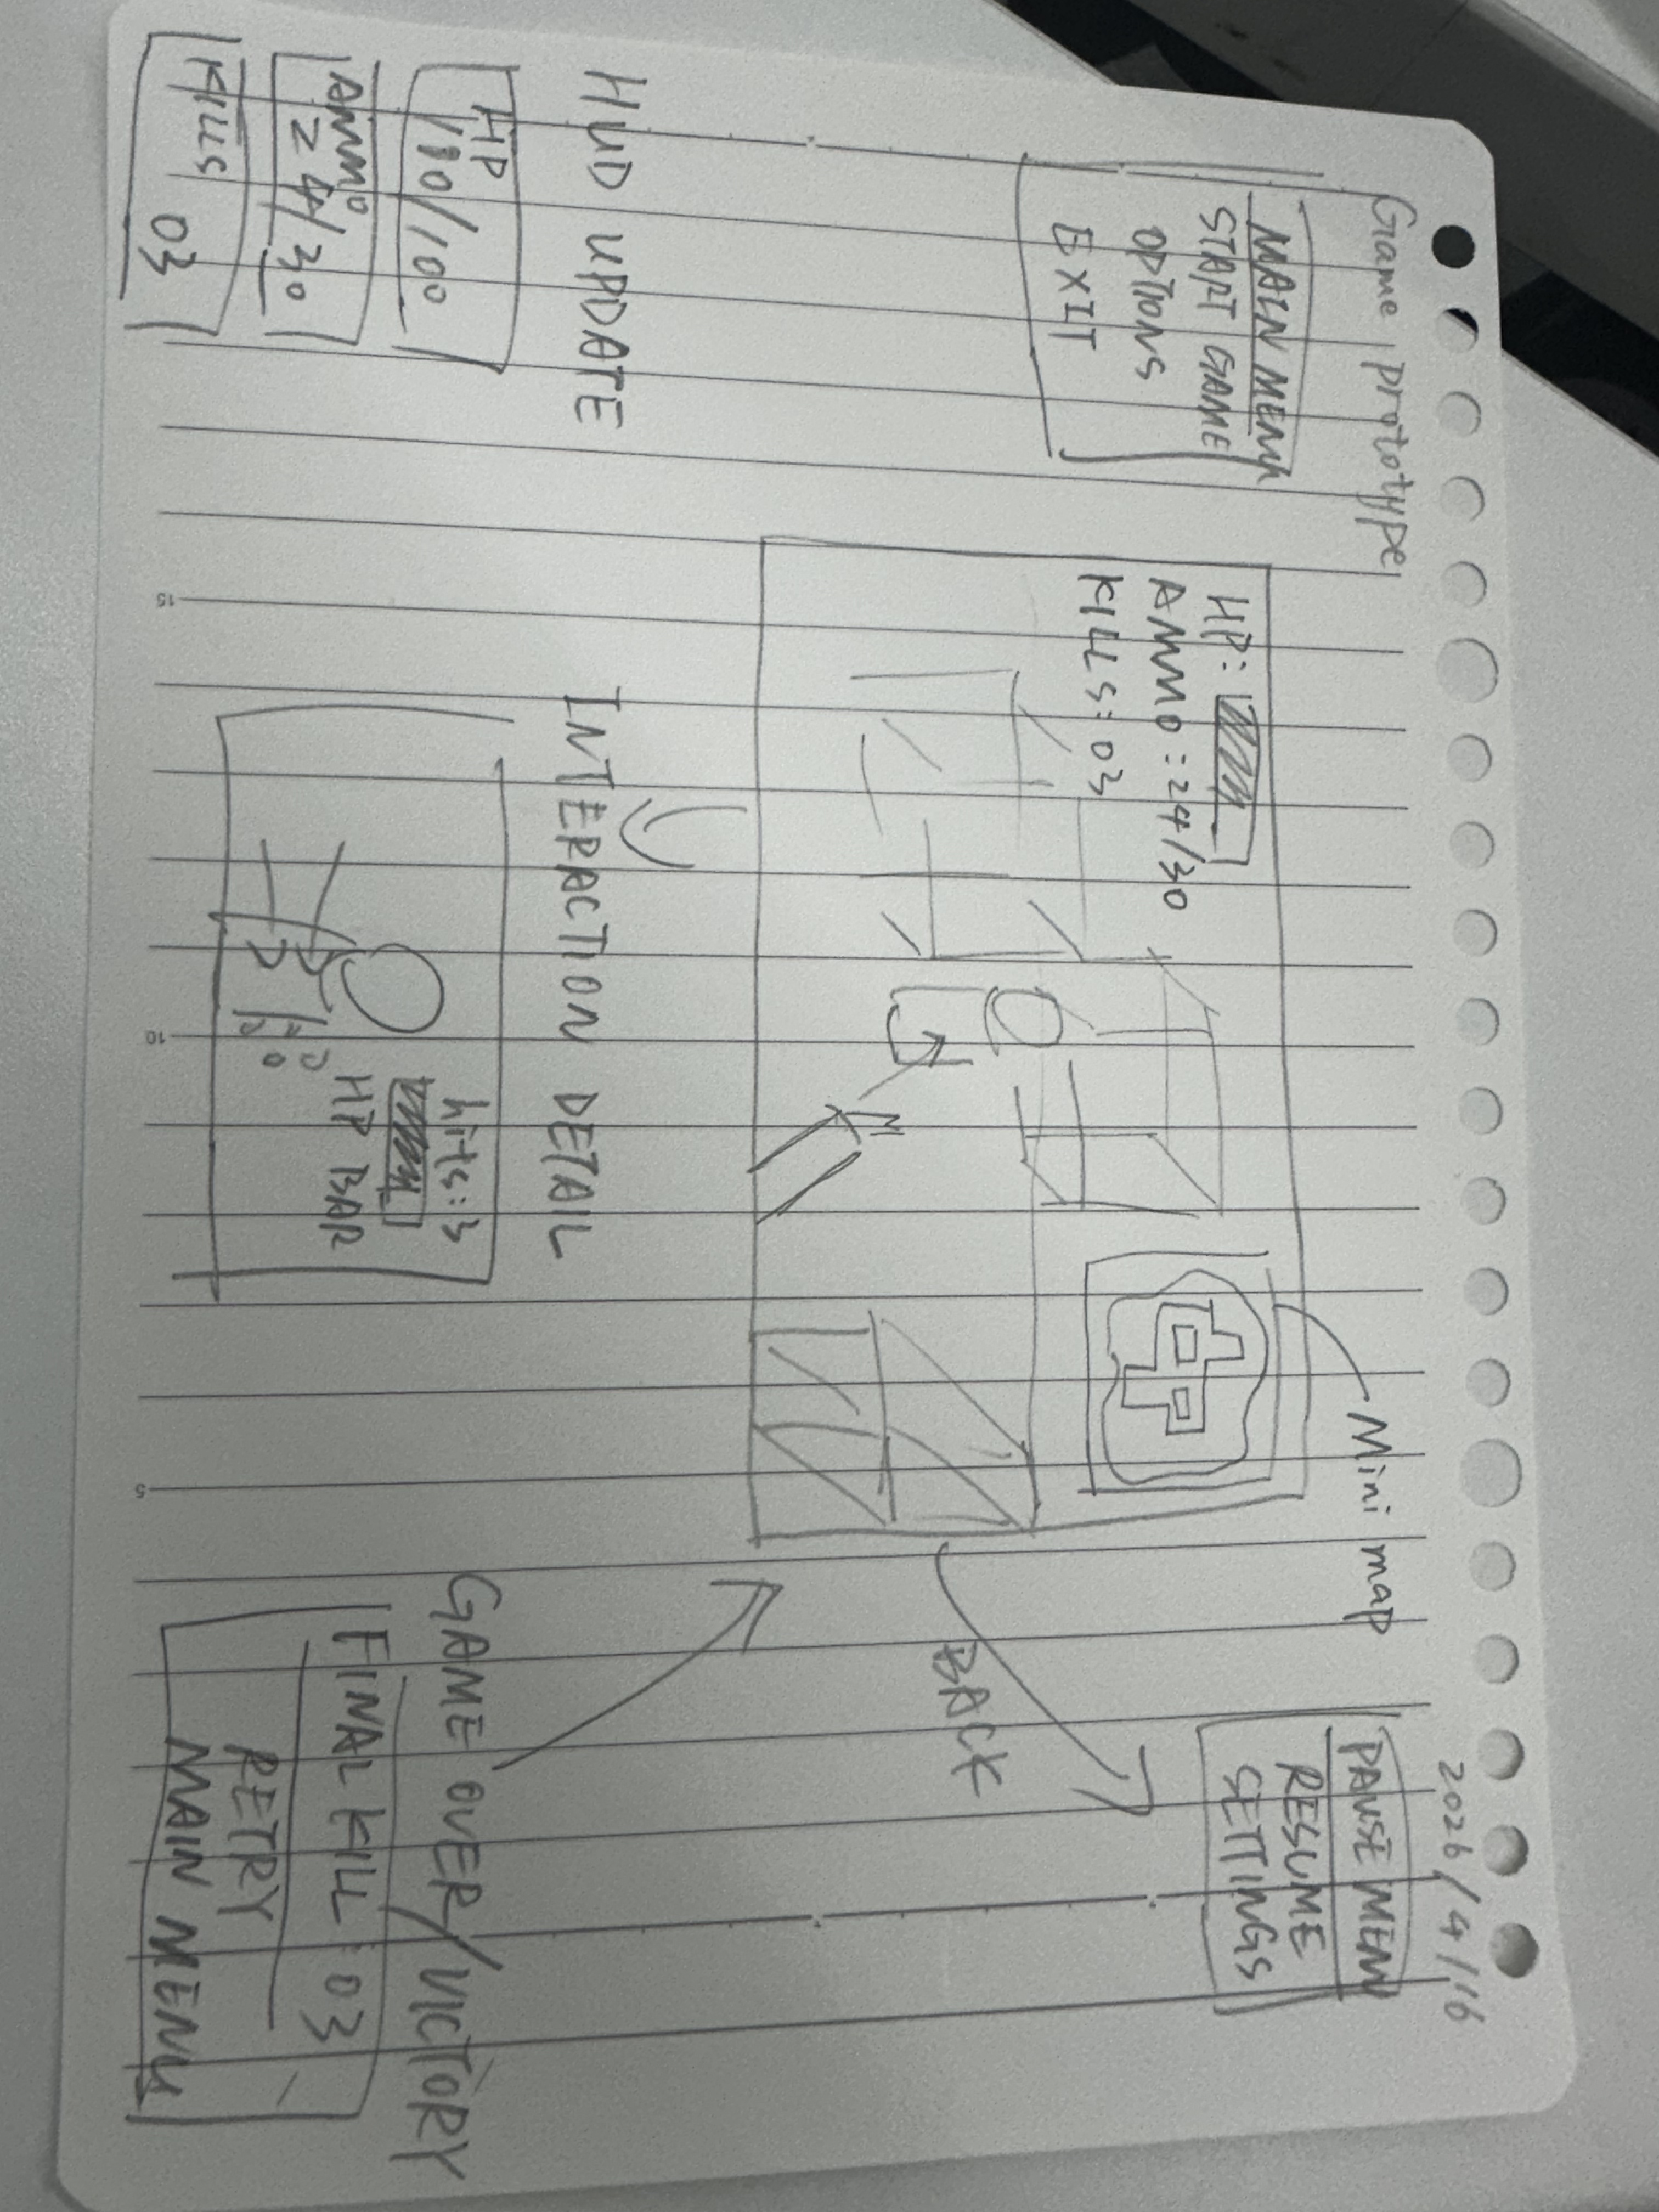 Game prototype
2026/4/16
MAIN MENU
START GAME
OPTIONS
EXIT
HP:
AMMO: 24/30
KILLS: 03
Mini map
PAUSE MENU
RESUME
SETTINGS
BACK
HUD UPDATE
HP
100/100
AMMO
24/30
KILLS
03
INTERACTION DETAIL
hits: 3
HP BAR
GAME OVER/VICTORY
FINAL KILL: 03
RETRY
MAIN MENU
15
10
5